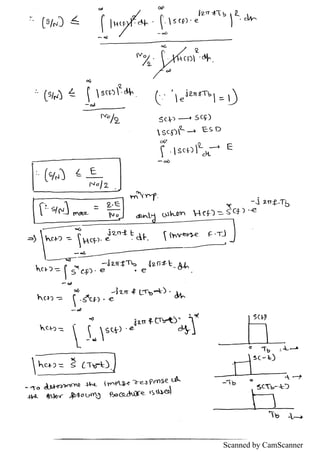 ∴ (S/N) ≤ ∫_{-∞}^{∞} |H(f)|² df · ∫_{-∞}^{∞} |S(f) · e^{j2πfTb}|² · df
N0/2 · ∫_{-∞}^{∞} |H(f)|² · df.
∴ (S/N) ≤ ∫_{-∞}^{∞} |S(f)|² · df. (∵ |e^{j2πfTb}| = 1)
N0/2
S(t) → S(f)
|S(f)|² → ESD
∫_{-∞}^{∞} |S(f)|² df → E
∴ (S/N) ≤ E
N0/2
[∴ S/N]max = 2·E
N0
only when H(f) = S*(f) · e^{-j2πf·Tb}
⇒ h(t) = ∫_{-∞}^{∞} H(f) · e^{j2πft} · df. [Inverse F.T]
h(t) = ∫_{-∞}^{∞} S*(f) · e^{-j2πfTb} · e^{j2πft} · df.
h(t) = ∫_{-∞}^{∞} S*(f) · e^{-j2πf(Tb-t)} · df
h(t) = [∫_{-∞}^{∞} S(f) · e^{j2πf(Tb-t)} · df]*
h(t) = S*(Tb-t)
S(t)
0 Tb t→
S(-t)
-Tb 0 t→
S(Tb-t)
Tb t→
- To determine the impulse response of
the filter following procedure is used
Scanned by CamScanner